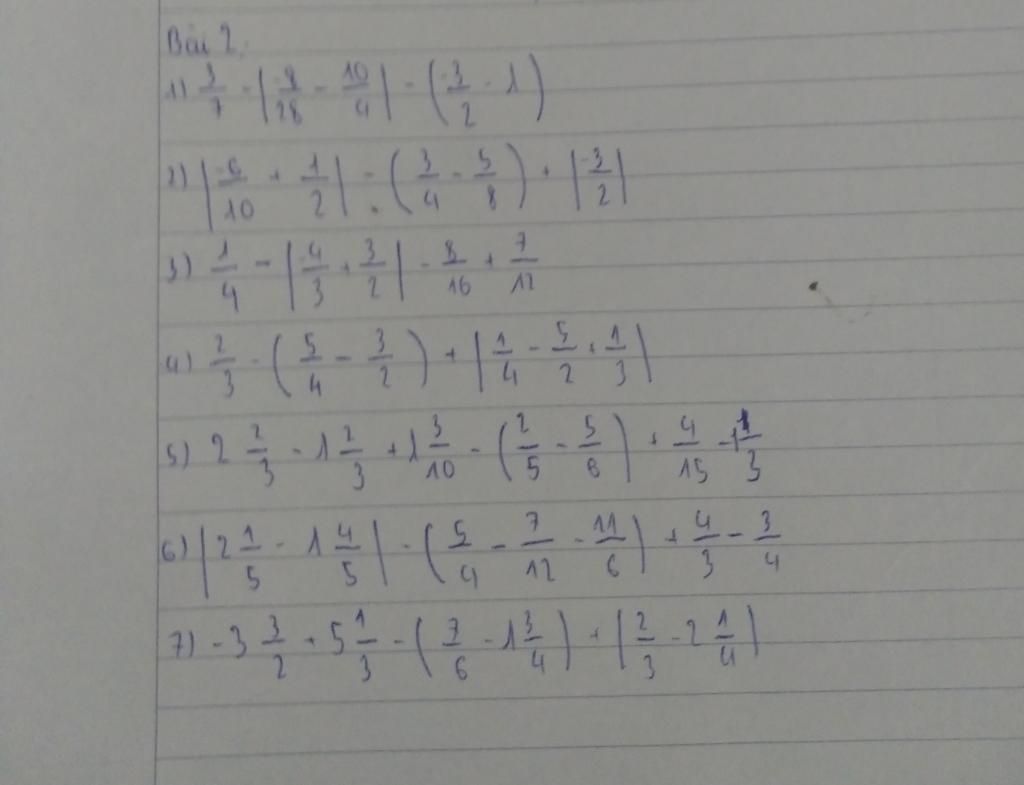 Bài 2.
1) 3/7 - |-9/28 - 10/4| - (-3/2 - 1)
2) |-6/10 + 1/2| - (3/4 - 5/8) + |-3/2|
3) 1/4 - |-4/3 + 3/2| - 8/16 + 7/12
4) 2/3 - (5/4 - 3/2) + |1/4 - 5/2 + 1/3|
5) 2 2/3 - 1 2/3 + 1 3/10 - (2/5 - 5/6) + 4/15 - 1 1/3
6) |2 1/5 - 1 4/5| - (5/4 - 7/12 - 11/6) + 4/3 - 3/4
7) -3 3/2 + 5 1/3 - (7/6 - 1 3/4) + |2/3 - 2 1/4|